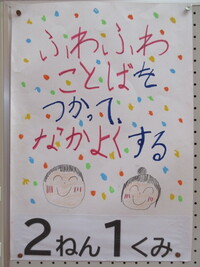 ふわふわ
ことばを
つかって、
なかよくする
2ねん1くみ